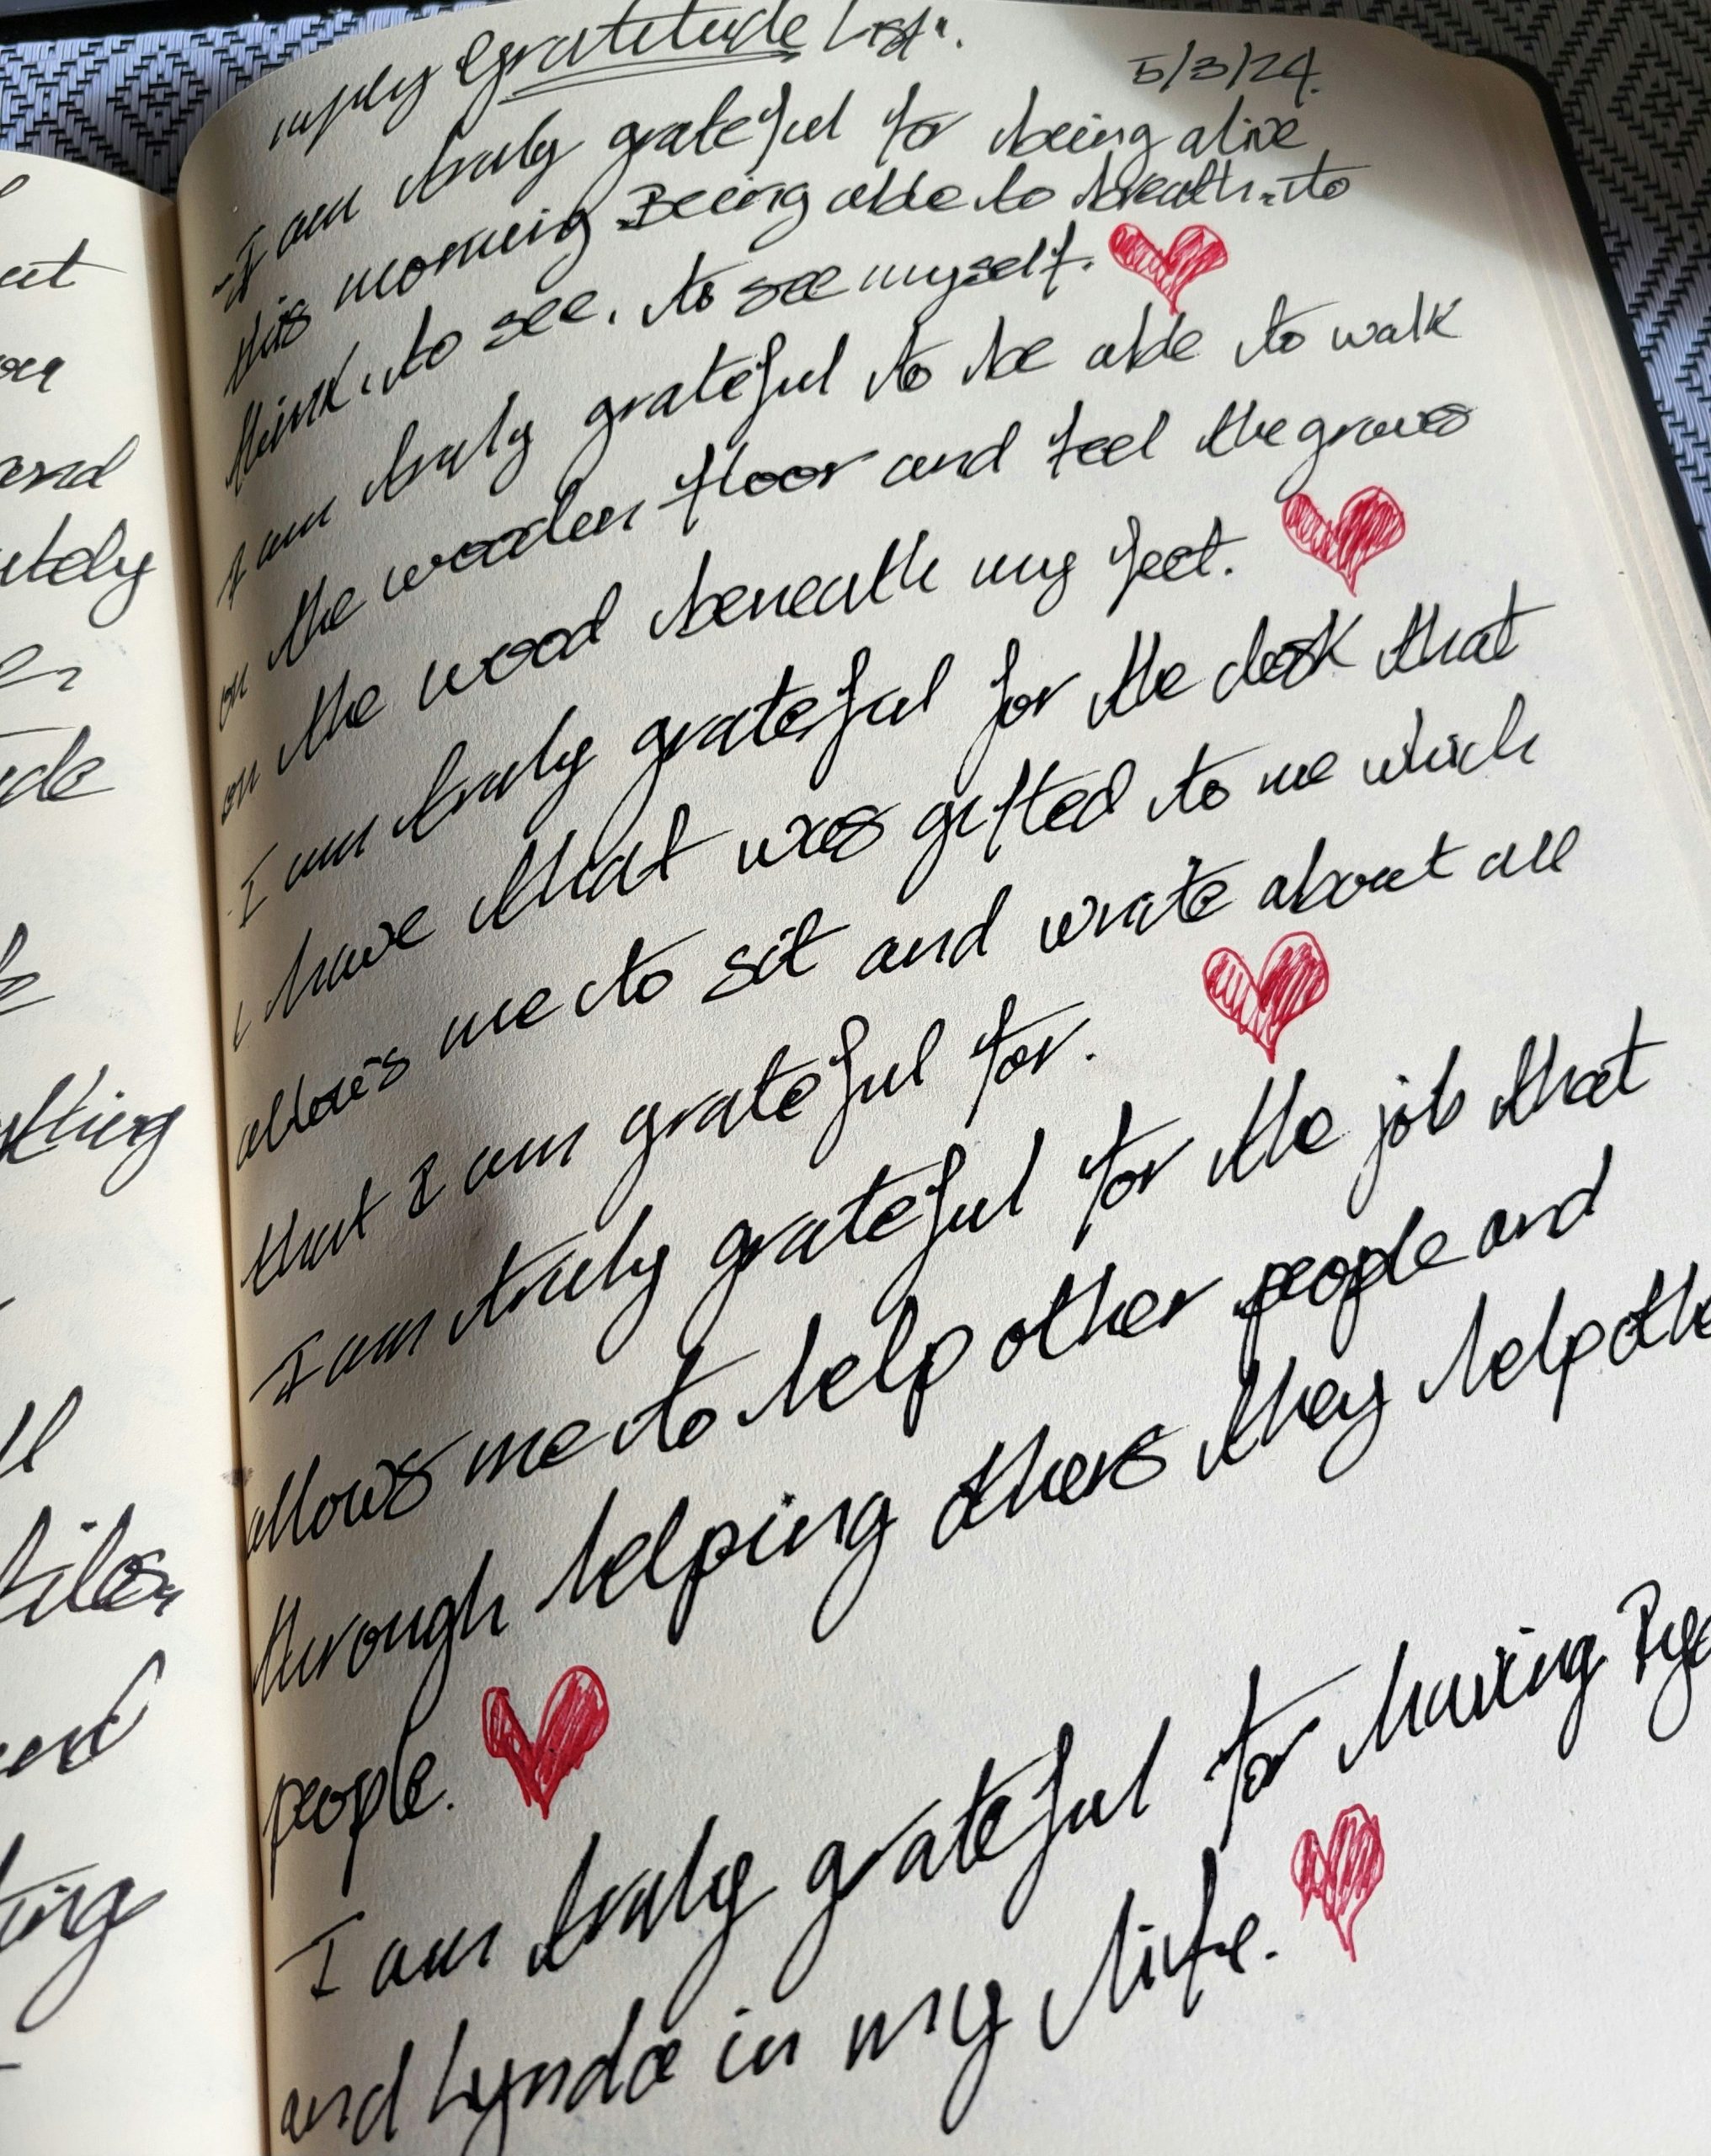 ut
and
utely
de
thing
ll
tiles,
and
ting
Gratitude List.
5/3/24.
I am truly grateful for being alive
this morning Being able to breath. to
think, to see, to see myself.
I am truly grateful to be able to walk
on the wooden floor and feel the groves
on the wood beneath my feet.
I am truly grateful for the desk that
I have that was gifted to me which
allows me to sit and write about all
that I am grateful for.
I am truly grateful for the job that
allows me to help other people and
through helping others they help othe
people.
I am truly grateful for having Rya
and Lynda in my life.